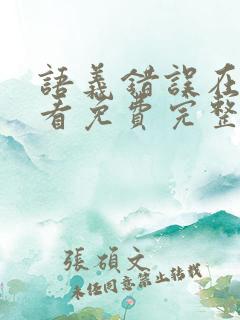 語義錯誤在
看免費完整
張碩文
未任同意禁止轉載